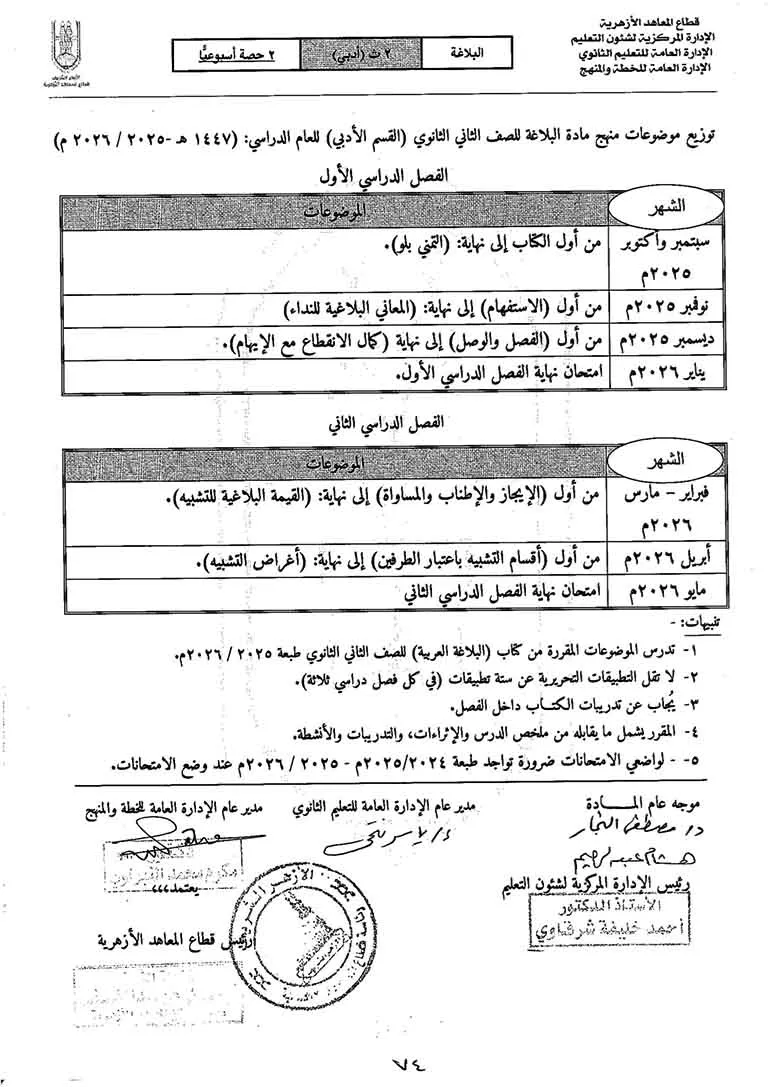 قطاع المعاهد الأزهرية
الإدارة المركزية لشئون التعليم
الإدارة العامة للتعليم الثانوي
الإدارة العامة للخطة والمنهج
البلاغة
٢ ث (أدبي)
٢ حصة أسبوعيًّا
الأزهر الشريف
قطاع المعاهد الأزهرية
توزيع موضوعات منهج مادة البلاغة للصف الثاني الثانوي (القسم الأدبي) للعام الدراسي: (١٤٤٧ هـ -٢٠٢٥ / ٢٠٢٦ م)
الفصل الدراسي الأول
الشهر
الموضوعات
سبتمبر وأكتوبر ٢٠٢٥م
من أول الكتاب إلى نهاية: (التمني بلو).
نوفمبر ٢٠٢٥م
من أول (الاستفهام) إلى نهاية: (المعاني البلاغية للنداء)
ديسمبر ٢٠٢٥م
من أول (الفصل والوصل) إلى نهاية (كمال الانقطاع مع الإيهام).
يناير ٢٠٢٦م
امتحان نهاية الفصل الدراسي الأول.
الفصل الدراسي الثاني
الشهر
الموضوعات
فبراير – مارس ٢٠٢٦م
من أول (الإيجاز والإطناب والمساواة) إلى نهاية: (القيمة البلاغية للتشبيه).
أبريل ٢٠٢٦م
من أول (أقسام التشبيه باعتبار الطرفين) إلى نهاية: (أغراض التشبيه).
مايو ٢٠٢٦م
امتحان نهاية الفصل الدراسي الثاني
تنبيهات: -
١- تدرس الموضوعات المقررة من كتاب (البلاغة العربية) للصف الثاني الثانوي طبعة ٢٠٢٥ / ٢٠٢٦م.
٢- لا تقل التطبيقات التحريرية عن ستة تطبيقات (في كل فصل دراسي ثلاثة).
٣- يُجاب عن تدريبات الكتاب داخل الفصل.
٤- المقرر يشمل ما يقابله من ملخص الدرس والإثراءات، والتدريبات والأنشطة.
٥- - لواضعي الامتحانات ضرورة تواجد طبعة ٢٠٢٥/٢٠٢٤م - ٢٠٢٥ / ٢٠٢٦م عند وضع الامتحانات.
موجه عام المـــادة
مدير عام الإدارة العامة للتعليم الثانوي
مدير عام الإدارة العامة للخطة والمنهج
د/ مصطفى النجار
يعتمد،،،
رئيس الإدارة المركزية لشئون التعليم
الأستاذ الدكتور
أحمد خليفة شرقاوي
رئيس قطاع المعاهد الأزهرية
٧٤